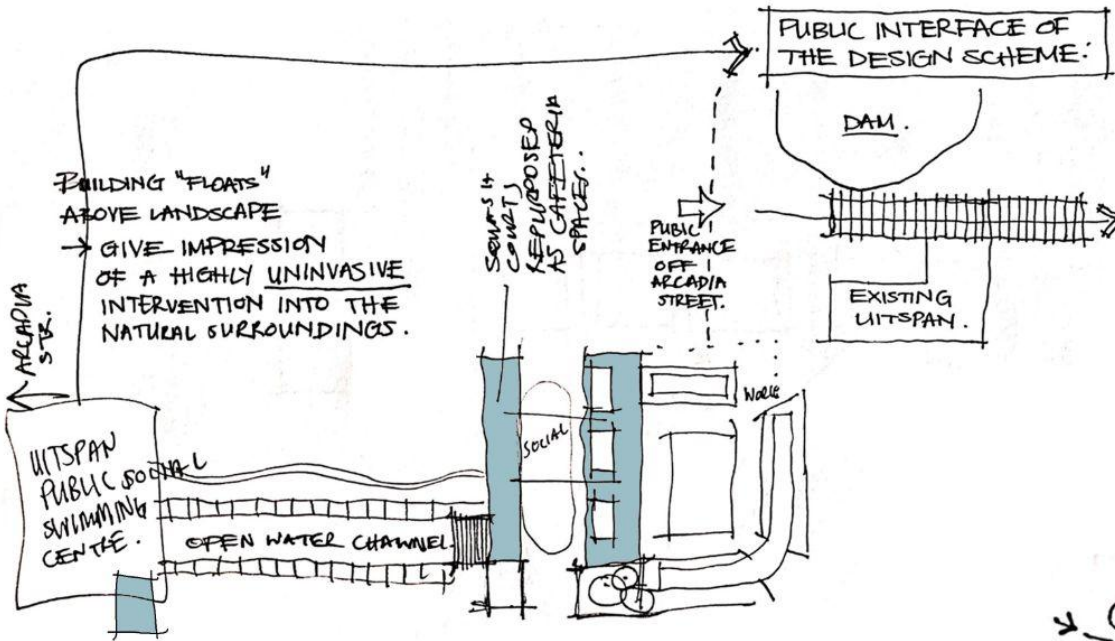 PUBLIC INTERFACE OF
THE DESIGN SCHEME:
DAM.
EXISTING
UITSPAN.
BUILDING "FLOATS"
ABOVE LANDSCAPE
→ GIVE IMPRESSION
OF A HIGHLY UNINVASIVE
INTERVENTION INTO THE
NATURAL SURROUNDINGS.
SQUASH
COURTS
REPURPOSED
AS CAFETERIA
SPACES...
PUBIC
ENTRANCE
OFF
ARCADIA
STREET.
ARCADIA
STR.
UITSPAN
PUBLIC SOCIAL
SWIMMING
CENTRE.
OPEN WATER CHANNEL.
SOCIAL